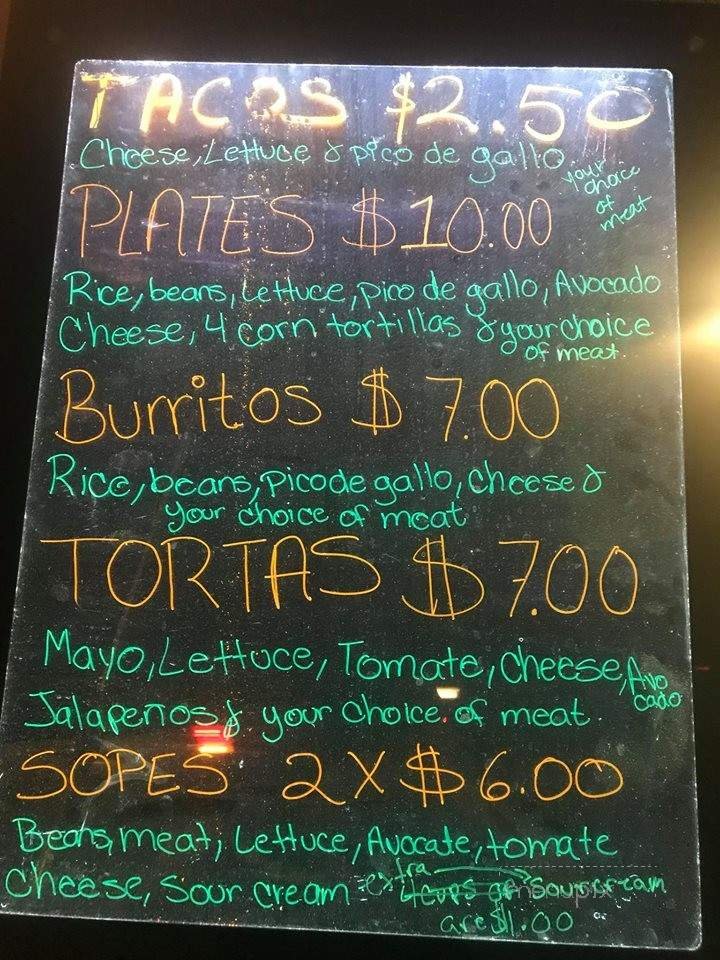 TACOS $2.50
Cheese, Lettuce & pico de gallo your choice of meat
PLATES $10.00
Rice, beans, Lettuce, pico de gallo, Avocado
Cheese, 4 corn tortillas & your choice
of meat.
Burritos $7.00
Rice, beans, Pico de gallo, cheese &
your choice of meat
TORTAS $7.00
Mayo, Lettuce, Tomate, cheese, Avocado
Jalapeños & your choice of meat.
SOPES 2X $6.00
Beans, meat, Lettuce, Avocate, tomate
cheese, Sour cream extra
cups of Sour cream
are $1.00
menupix